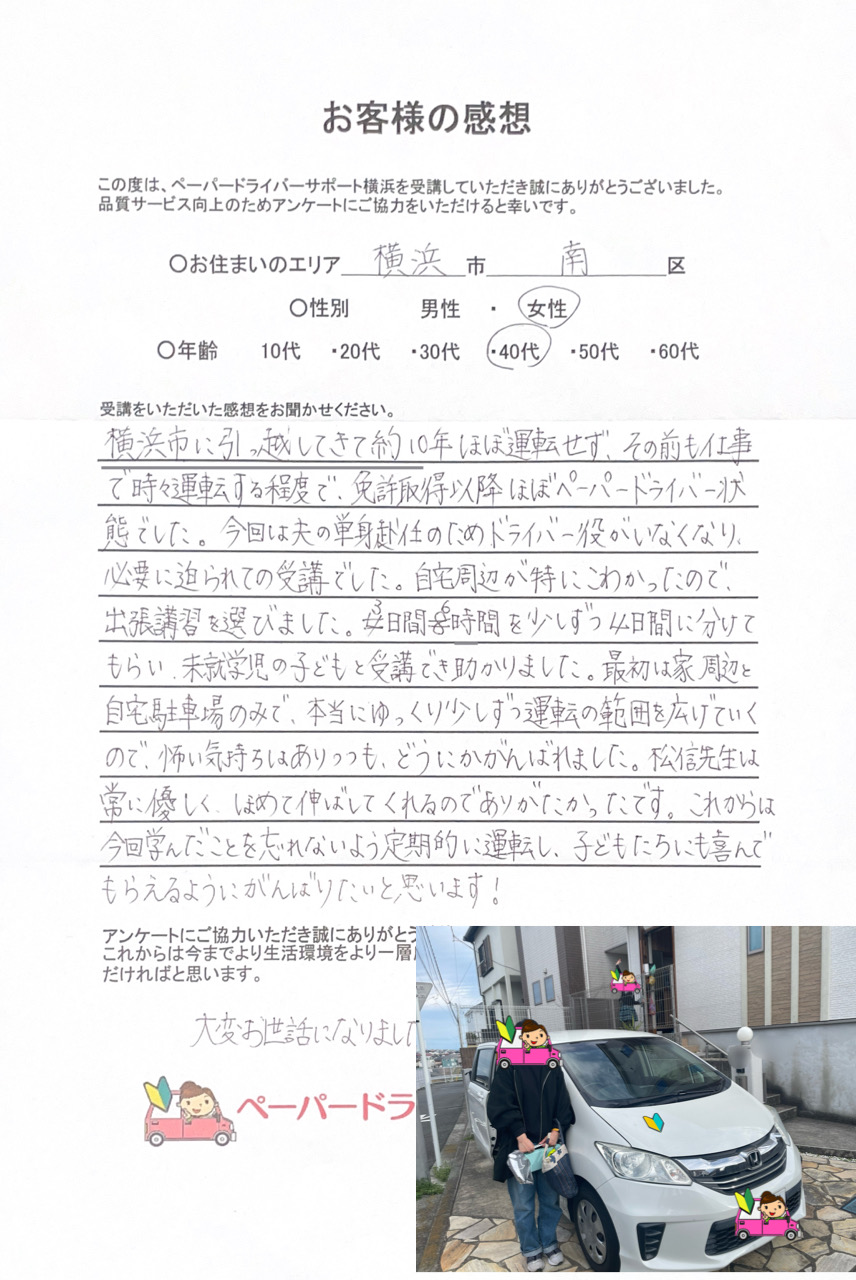 お客様の感想
この度は、ペーパードライバーサポート横浜を受講していただき誠にありがとうございました。
品質サービス向上のためアンケートにご協力をいただけると幸いです。
〇お住まいのエリア 横浜 市 南 区
〇性別 男性 ・ 女性
〇年齢 10代 ・20代 ・30代 ・40代 ・50代 ・60代
受講をいただいた感想をお聞かせください。
横浜市に引っ越してきて約10年ほぼ運転せず、その前も仕事
で時々運転する程度で、免許取得以降ほぼペーパードライバー状
態でした。今回は夫の単身赴任のためドライバー役がいなくなり、
必要に迫られての受講でした。自宅周辺が特にこわかったので、
出張講習を選びました。3日間6時間を少しずつ4日間に分けて
もらい、未就学児の子どもと受講でき助かりました。最初は家周辺と
自宅駐車場のみで、本当にゆっくり少しずつ運転の範囲を広げていく
ので、怖い気持ちはありつつも、どうにかがんばれました。松信先生は
常に優しく、ほめて伸ばしてくれるのでありがたかったです。これからは
今回学んだことを忘れないよう定期的に運転し、子どもたちにも喜んで
もらえるようにがんばりたいと思います!
アンケートにご協力いただき誠にありがとう
これからは今までより生活環境をより一層
だければと思います。
大変お世話になりました
ペーパードラ